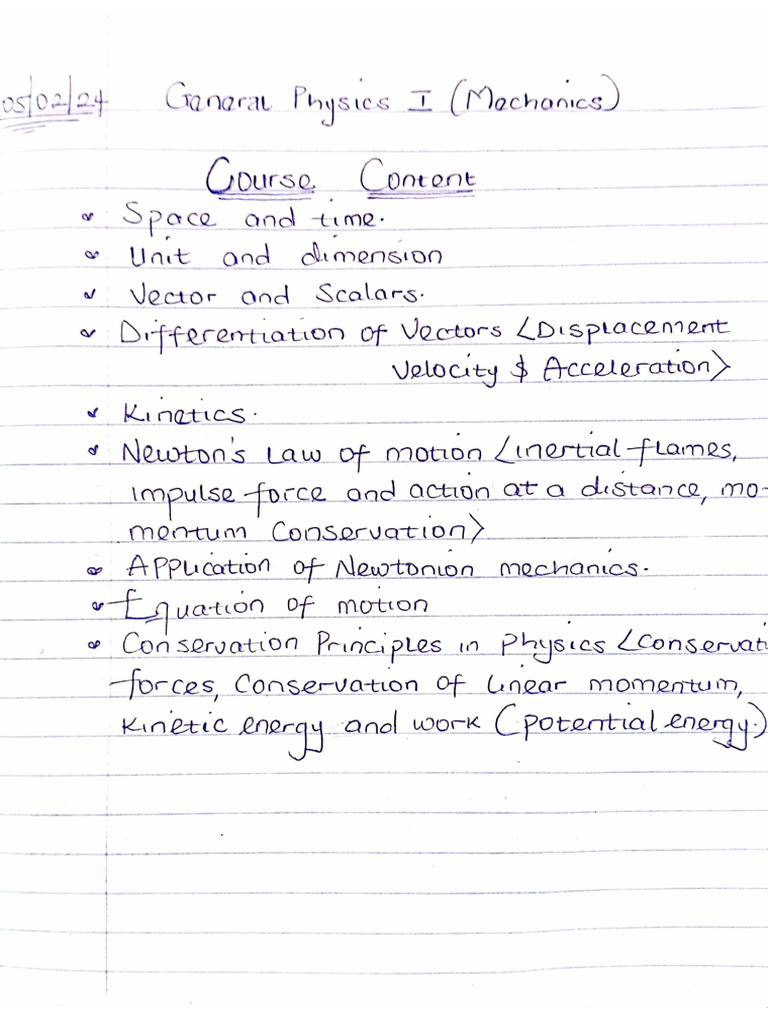 05/02/24 General Physics I (Mechanics)
Course Content
Space and time.
Unit and dimension
Vector and Scalars.
Differentiation of Vectors <Displacement
Velocity $ Acceleration>
Kinetics.
Newton's Law of motion <inertial flames,
impulse force and action at a distance, mo-
mentum Conservation>
Application of Newtonion mechanics.
Equation of motion
Conservation Principles in Physics <Conservati
forces, Conservation of linear momentum,
Kinetic energy and work (potential energy.)